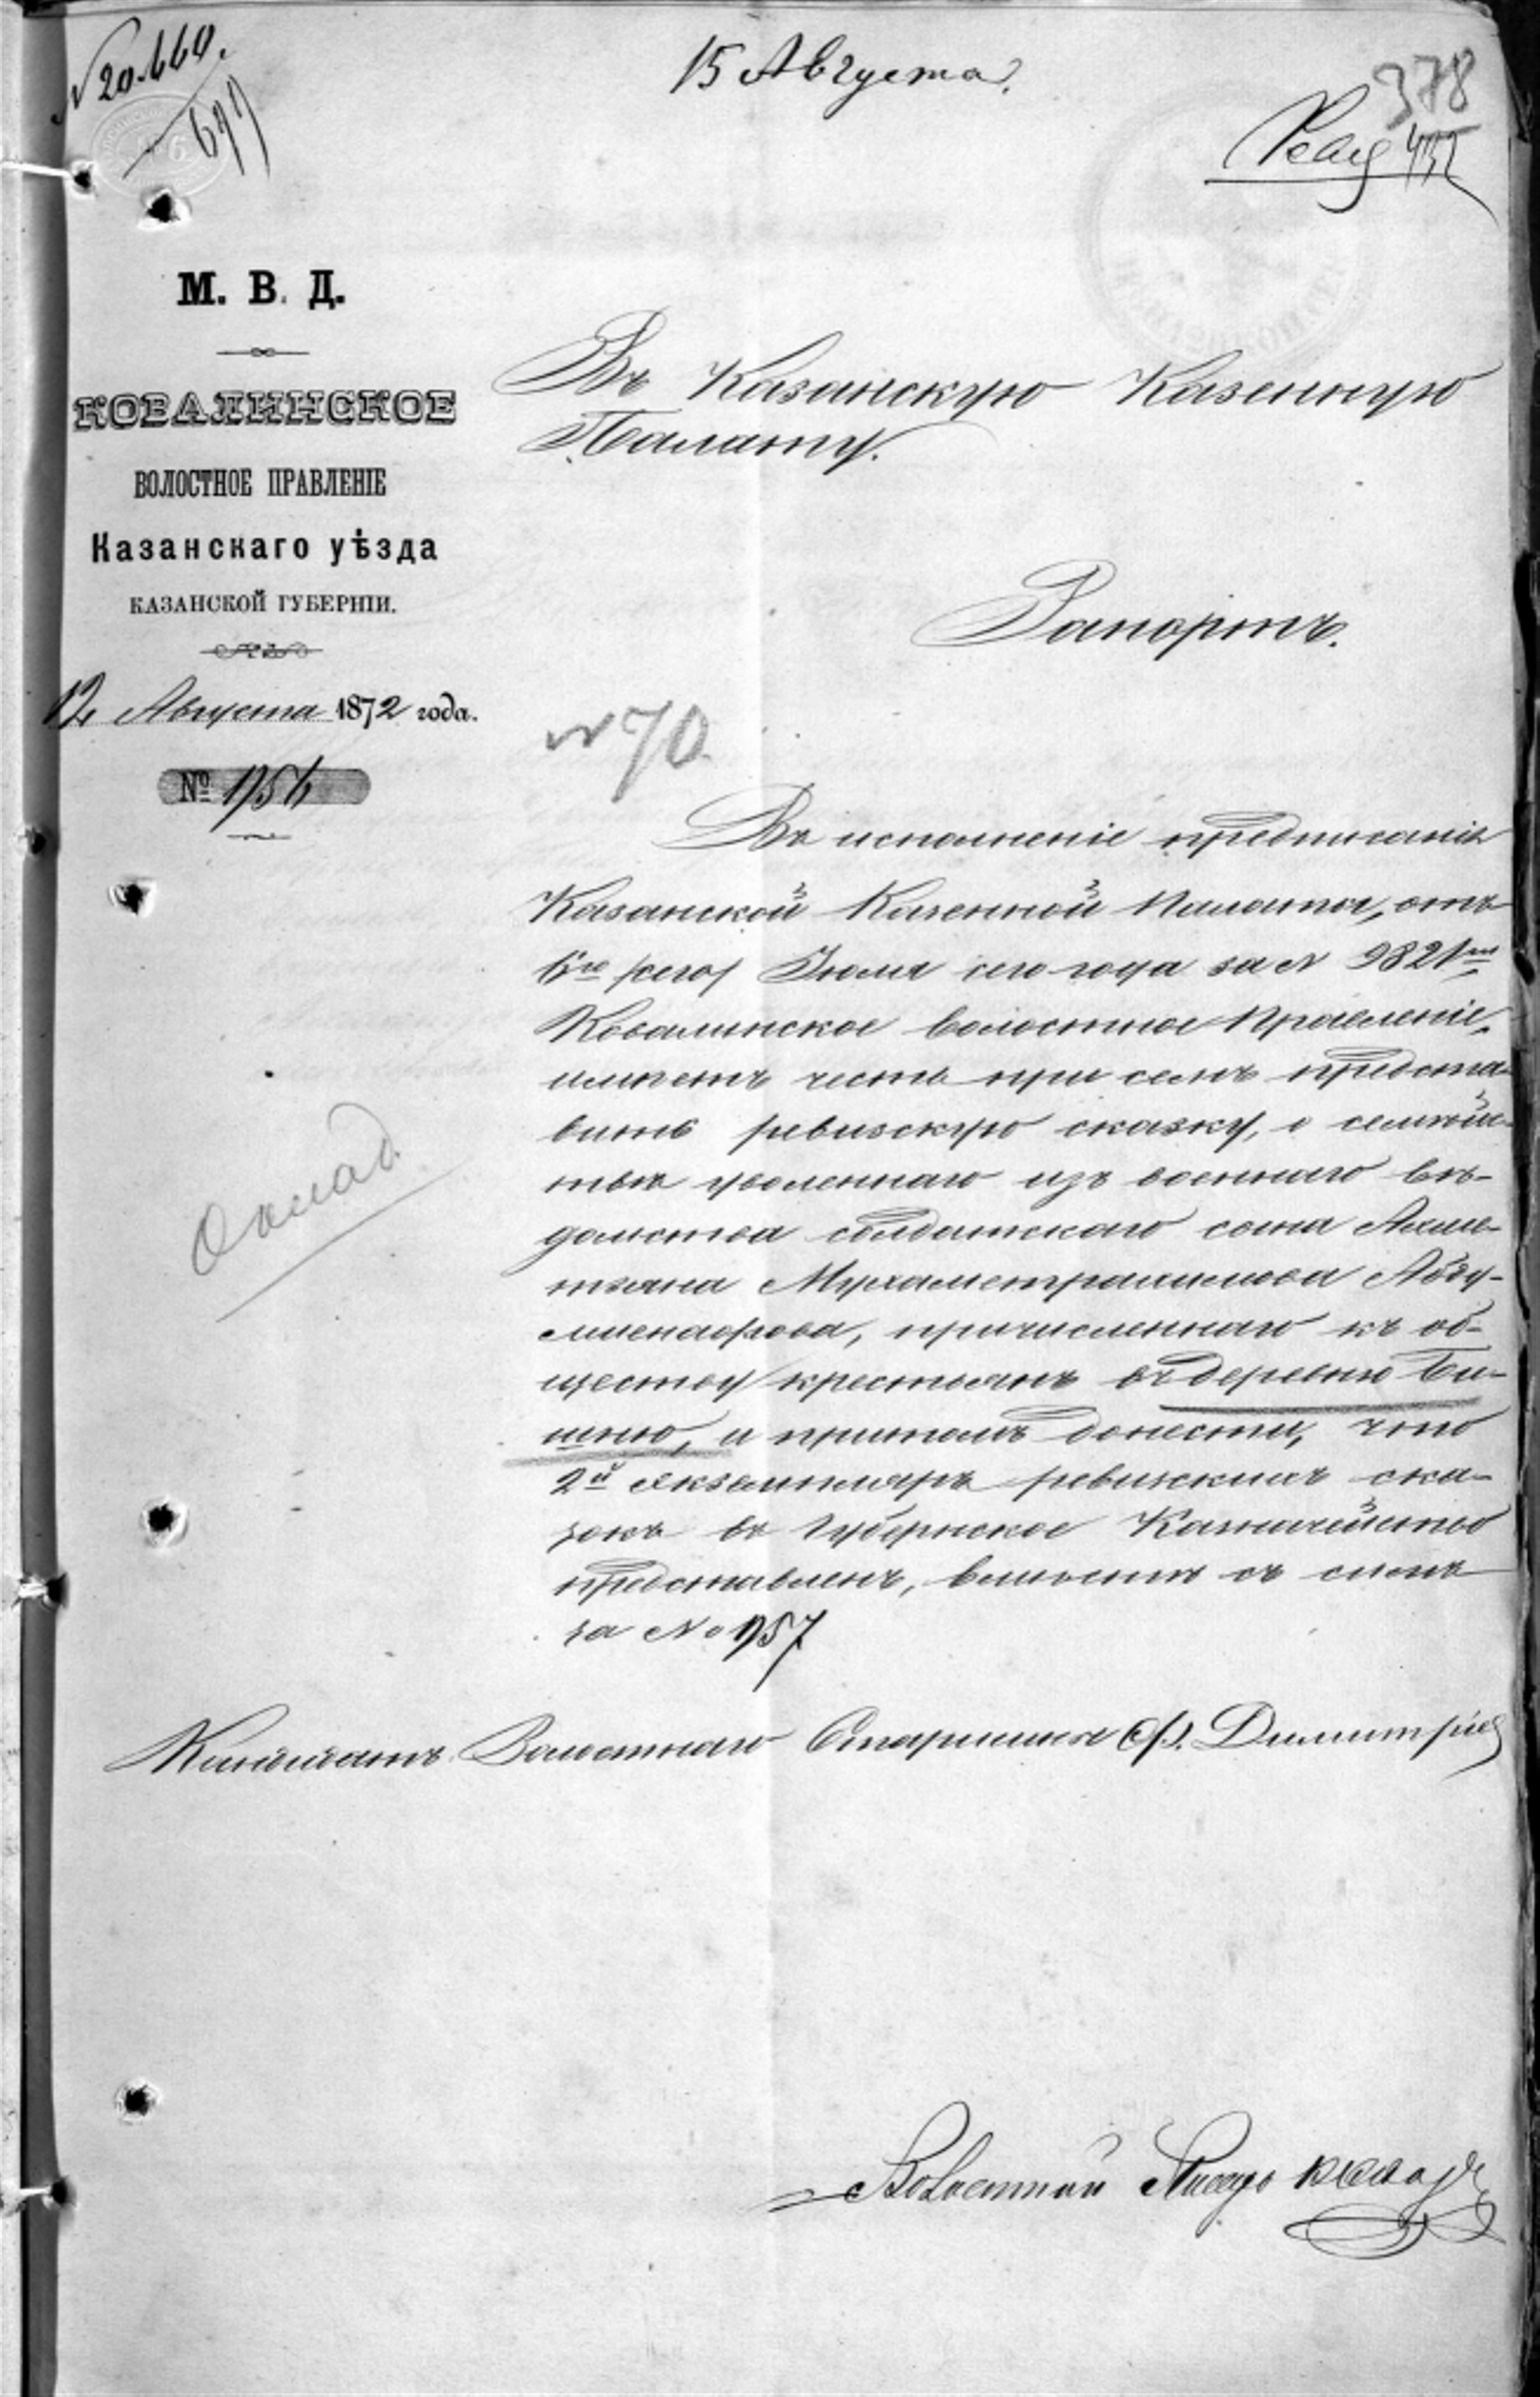 № 20.660.
699
15 Августа.
378
М. В. Д.
КОВАЛИНСКОЕ
ВОЛОСТНОЕ ПРАВЛЕНІЕ
Казанскаго уѣзда
КАЗАНСКОЙ ГУБЕРНІИ.
12 Августа 1872 года.
№ 1956
Въ Казанскую Казенную
Палату.
Рапортъ.
№ 70
Во исполненіе предписанія
Казанской Казенной Палаты, отъ
Іюля сего года за №
Ковалинское волостное Правленіе,
имѣетъ честь при семъ предста-
вить ревизскую сказку, о семѣйс-
твѣ уволеннаго изъ военнаго вѣ-
домства солдатскаго сына Ахме-
тзяна Мухаметрахимова Абду-
причисленнаго къ об-
ществу крестьянъ въ деревню Би-
шню, и притомъ донести, что
2й экземпляръ ревизскихъ ска-
зокъ въ Губернское Казначейство
представленъ, вмѣстѣ съ симъ
за № 1957
Оклад
Кандидатъ Волостнаго Старшины Димитріев
Волостной Писарь